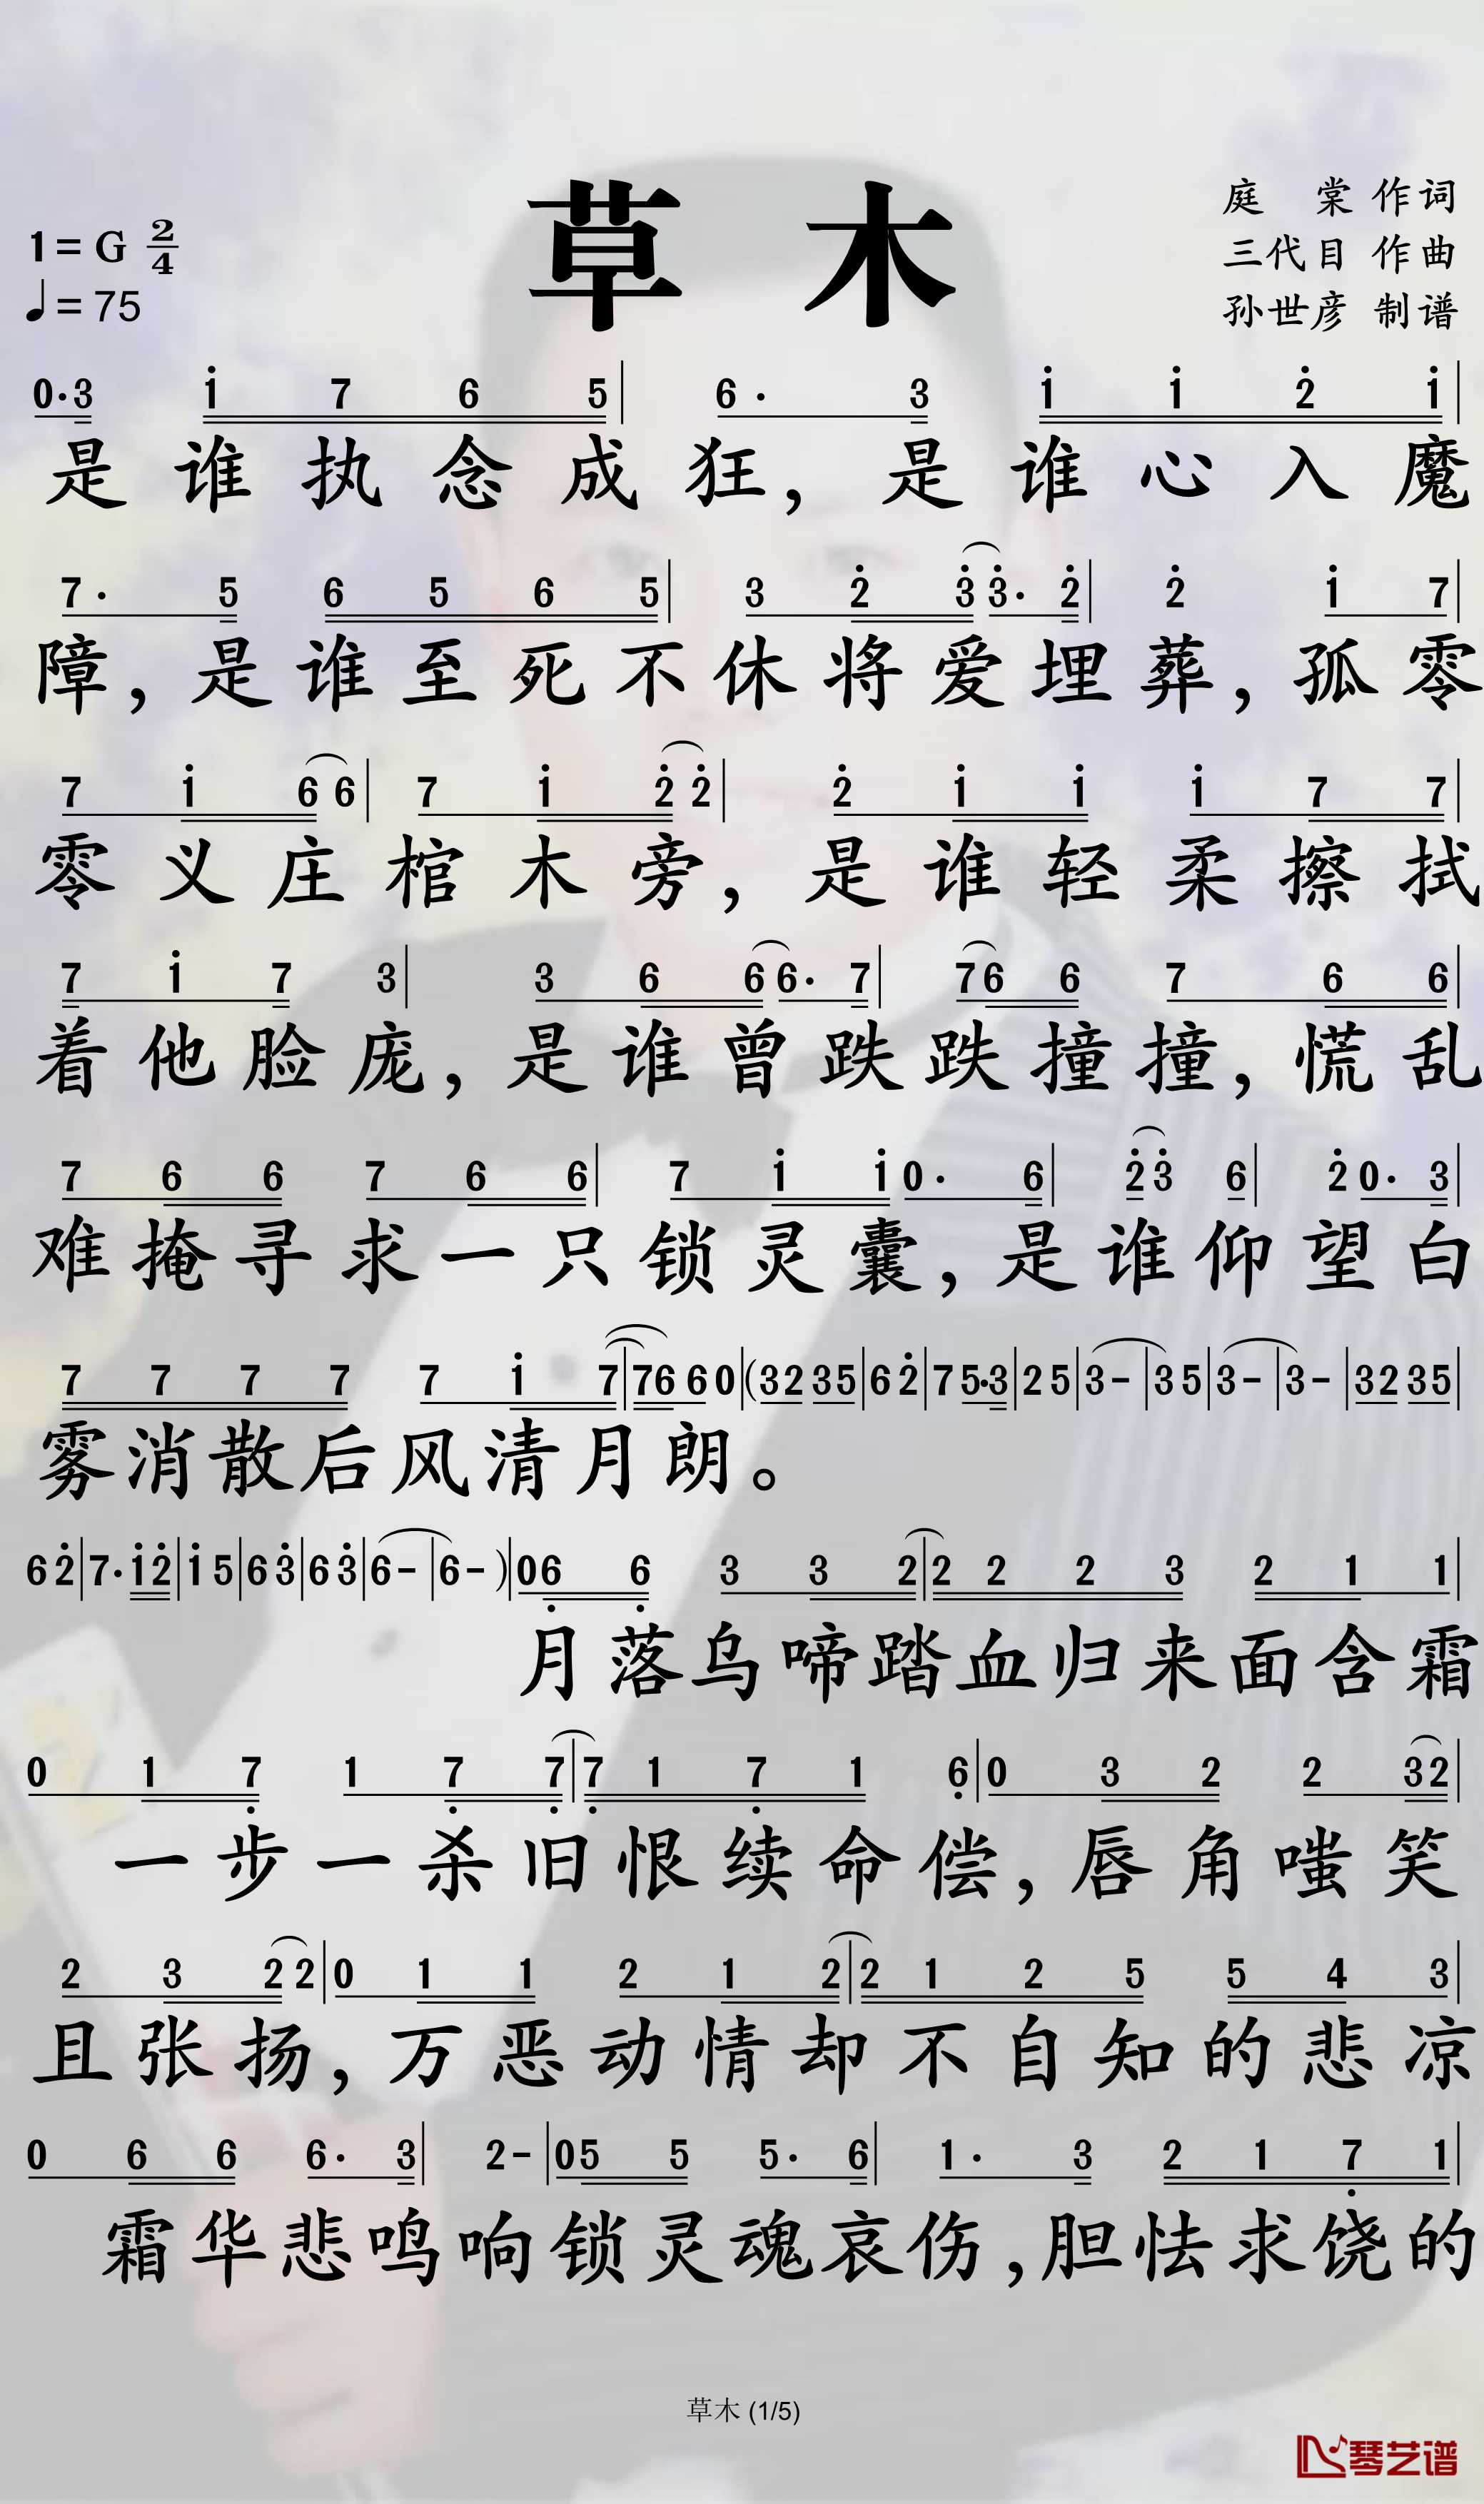 草 木
庭 棠 作词
1=G 2/4
三代目 作曲
♩=75
孙世彦 制谱
0·3 1̇ 7 6 5| 6· 3 1̇ 1̇ 2̇ 1̇|
是谁执念成狂,是谁心入魔
7· 5 6 5 6 5| 3 2̇ 3̇ 3̇· 2̇| 2̇ 1̇ 7
障,是谁至死不休将爱埋葬,孤零
7 1̇ 6 6| 7 1̇ 2̇ 2̇| 2̇ 1̇ 1̇ 1̇ 7 7|
零义庄棺木旁,是谁轻柔擦拭
7 1̇ 7 3| 3 6 6 6· 7| 7 6 6 7 6 6|
着他脸庞,是谁曾跌跌撞撞,慌乱
7 6 6 7 6 6| 7 1̇ 1̇ 0· 6| 2̇ 3̇ 6| 2̇ 0· 3|
难掩寻求一只锁灵囊,是谁仰望白
7 7 7 7 7 1̇ 7|7 6 6 0|(3 2 3 5|6 2̇|7 5·3|2 5|3 -|3 5|3 -|3 -|3 2 3 5|
雾消散后风清月朗。
6 2̇|7· 1̇ 2̇|1̇ 5|6 3̇|6 3̇|6 -|6 - )|0 6̣ 6̣ 3 3 2|2 2 2 3 2 1 1|
月落乌啼踏血归来面含霜
0 1 7̣ 1 7̣ 7̣|7̣ 1 7̣ 1 6̣|0 3 2 2 3 2|
一步一杀旧恨续命偿,唇角嗤笑
2 3 2 2|0 1 1 2 1 2|2 1 2 5 5 4 3|
且张扬,万恶动情却不自知的悲凉
0 6 6 6· 3| 2 -|0 5 5 5· 6| 1· 3 2 1 7̣ 1|
霜华悲鸣响锁灵魂哀伤,胆怯求饶的
草木 (1/5)
琴艺谱